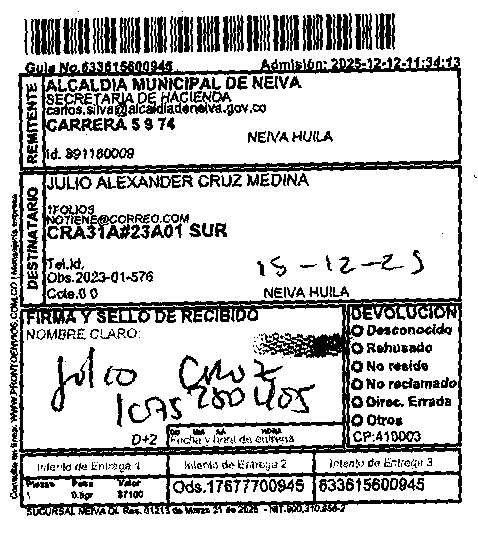 Guia No.633615600945 Admisión: 2025-12-12-11:34:13
REMITENTE
ALCALDIA MUNICIPAL DE NEIVA
SECRETARIA DE HACIENDA
carlos.silva@alcaldianeiva.gov.co
CARRERA 5 9 74
NEIVA HUILA
Id. 891180009
DESTINATARIO
JULIO ALEXANDER CRUZ MEDINA
1FOLIOS
NOTIENE@CORREO.COM
CRA31A#23A01 SUR
Tel.Id.
Obs.2023-01-576
15-12-25
Cote.0 0
NEIVA HUILA
FIRMA Y SELLO DE RECIBIDO
NOMBRE CLARO:
Julio Cruz
1075
D+2
Fecha y hora de entrega
DEVOLUCION
Desconocido
Rehusado
No reside
No reclamado
Direc. Errada
Otros
CP:410003
Intento de Entrega 1 Intento de Entrega 2 Intento de Entrega 3
Piezas Peso Valor
1 0.5gr $7100
Ods.17677700945 633615600945
SUCURSAL NEIVA